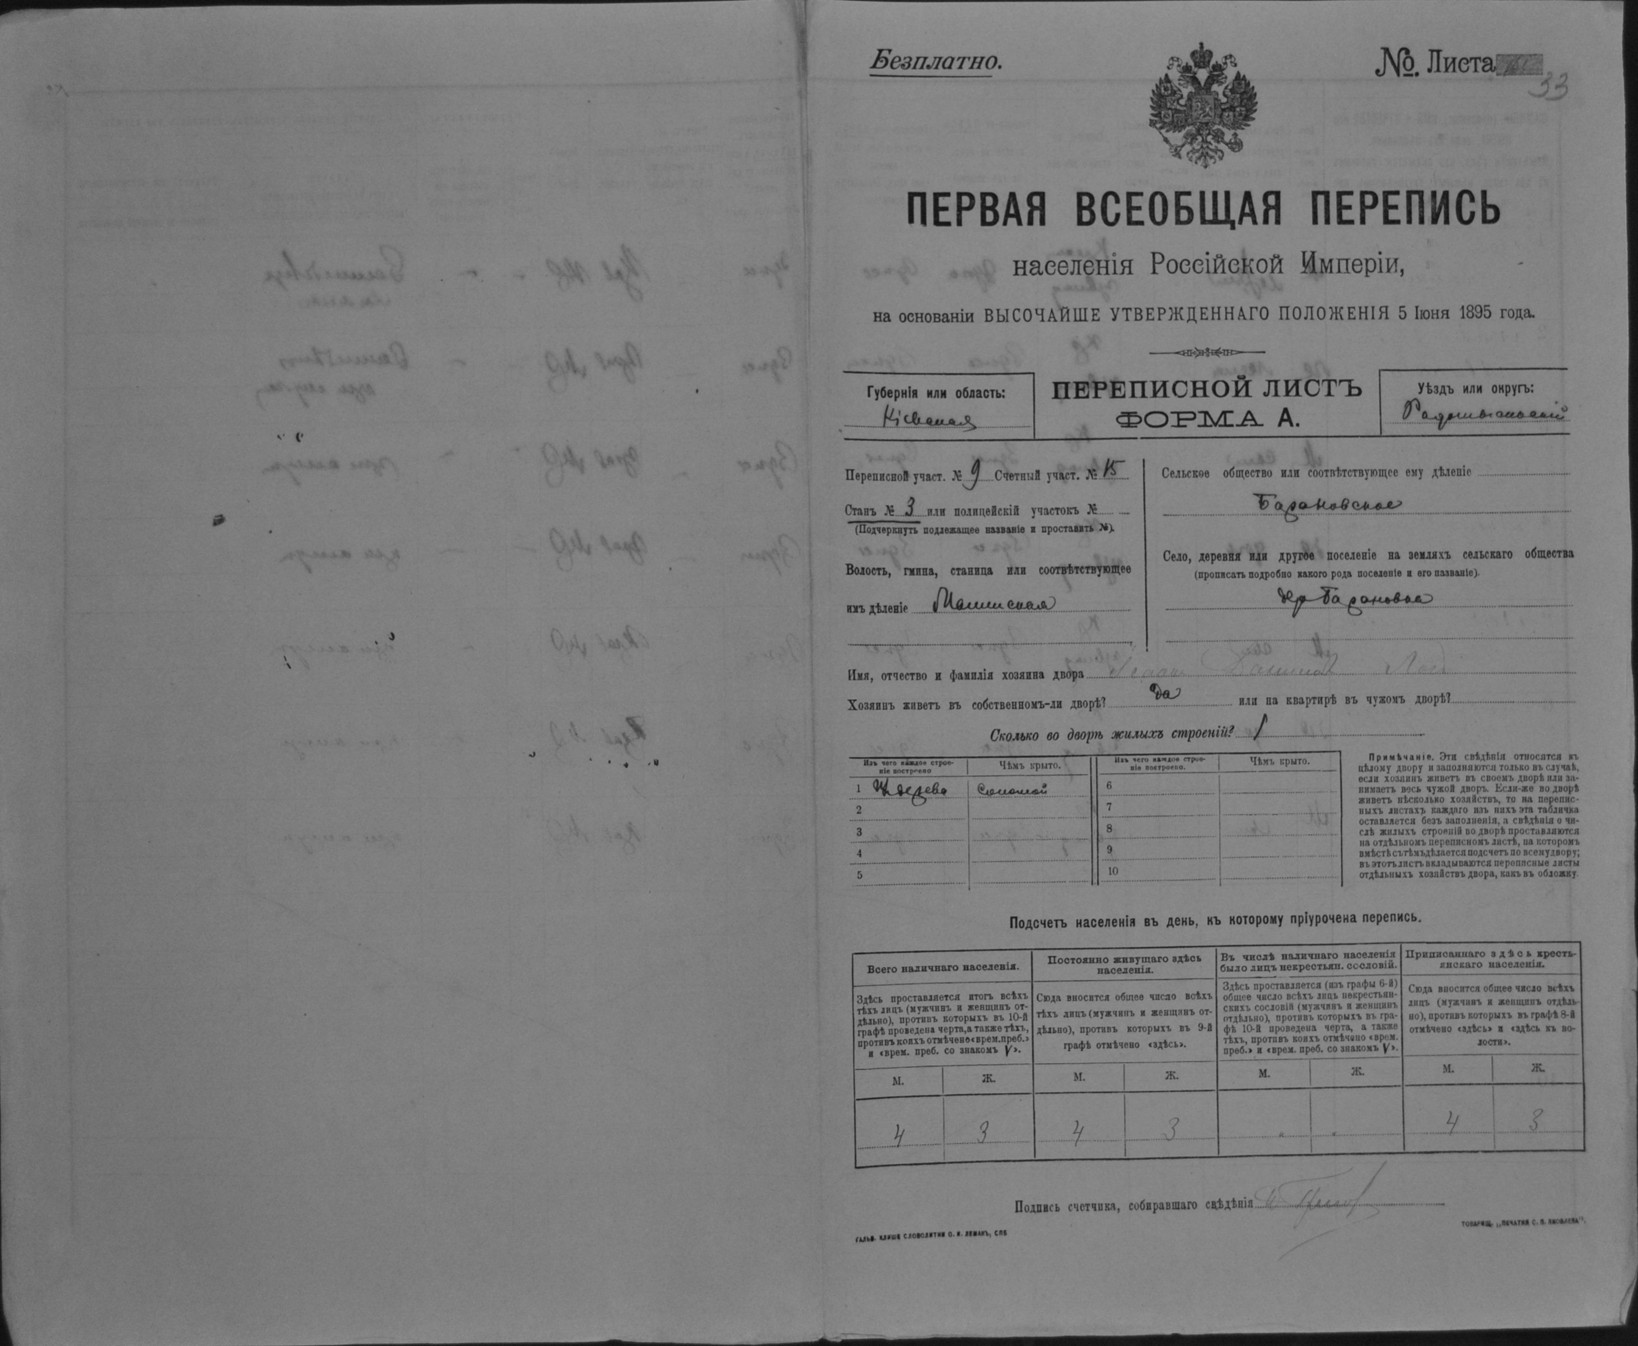 Безплатно.
№. Листа
33
ПЕРВАЯ ВСЕОБЩАЯ ПЕРЕПИСЬ
населенія Россійской Имперіи,
на основаніи ВЫСОЧАЙШЕ УТВЕРЖДЕННАГО ПОЛОЖЕНІЯ 5 Іюня 1895 года.
Губернія или область:
Кіевская
ПЕРЕПИСНОЙ ЛИСТЪ
ФОРМА А.
Уѣздъ или округъ:
Радомысльскій
Переписной участ. № 9 Счетный участ. № 15
Станъ № 3 или полицейскій участокъ №
(Подчеркнуть подлежащее названіе и проставить №).
Волость, гмина, станица или соотвѣтствующее
имъ дѣленіе
Сельское общество или соотвѣтствующее ему дѣленіе
Барановское
Село, деревня или другое поселеніе на земляхъ сельскаго общества
(прописать подробно какого рода поселеніе и его названіе).
дер Барановка
Имя, отчество и фамилія хозяина двора
Хозяинъ живетъ въ собственномъ-ли дворѣ? да или на квартирѣ въ чужомъ дворѣ?
Сколько во дворѣ жилыхъ строеній? 1
Изъ чего каждое строе-
ніе построено
Чѣмъ крыто.
1 Изъ дерева соломой
2
3
4
5
Изъ чего каждое строе-
ніе построено.
Чѣмъ крыто.
6
7
8
9
10
Примѣчаніе. Эти свѣдѣнія относятся къ
цѣлому двору и заполняются только въ случаѣ,
если хозяинъ живетъ въ своемъ дворѣ или за-
нимаетъ весь чужой дворъ. Если-же во дворѣ
живетъ нѣсколько хозяйствъ, то на перепис-
ныхъ листахъ каждаго изъ нихъ эта табличка
оставляется безъ заполненія, а свѣдѣнія о чи-
слѣ жилыхъ строеній во дворѣ проставляются
на отдѣльномъ переписномъ листѣ, на которомъ
вмѣстѣ съ тѣмъ дѣлается подсчетъ по всему двору;
въ этотъ листъ вкладываются переписные листы
отдѣльныхъ хозяйствъ двора, какъ въ обложку.
Подсчетъ населенія въ день, къ которому пріурочена перепись.
Всего наличнаго населенія.
Здѣсь проставляется итогъ всѣхъ
тѣхъ лицъ (мужчинъ и женщинъ от-
дѣльно), противъ которыхъ въ 10-й
графѣ проведена черта, а также тѣхъ,
противъ коихъ отмѣчено «врем. преб.»
и «врем. преб. со знакомъ V».
Постоянно живущаго здѣсь
населенія.
Сюда вносится общее число всѣхъ
тѣхъ лицъ (мужчинъ и женщинъ от-
дѣльно), противъ которыхъ въ 9-й
графѣ отмѣчено «здѣсь».
Въ числѣ наличнаго населенія
было лицъ некрестьян. сословій.
Здѣсь проставляется (изъ графы 6-й)
общее число всѣхъ лицъ некрестьян-
скихъ сословій (мужчинъ и женщинъ
отдѣльно), противъ которыхъ въ гра-
фѣ 10-й проведена черта, а также
тѣхъ, противъ коихъ отмѣчено «врем.
преб.» и «врем. преб. со знакомъ V».
Приписаннаго здѣсь кресть-
янскаго населенія.
Сюда вносится общее число всѣхъ
лицъ (мужчинъ и женщинъ отдѣль-
но), противъ которыхъ въ графѣ 8-й
отмѣчено «здѣсь» и «здѣсь въ во-
лости».
М. Ж. М. Ж. М. Ж. М. Ж.
4 3 4 3 4 3
Подпись счетчика, собиравшаго свѣдѣнія
ГАЛЬВ. КЛИШЕ СЛОВОЛИТНИ О. И. ЛЕМАНЪ, СПБ
ТОВАРИЩ. „ПЕЧАТНЯ С. П. ЯКОВЛЕВА“.